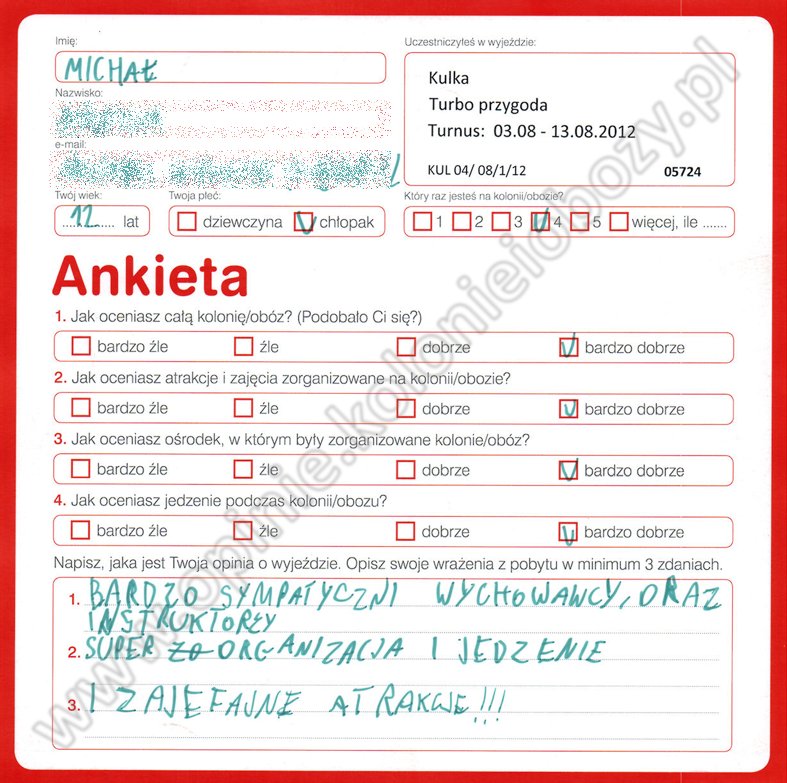 Imię:
Uczestniczyłeś w wyjeździe:
MICHAŁ
Kulka
Turbo przygoda
Turnus: 03.08 - 13.08.2012
KUL 04/ 08/1/12
05724
Nazwisko:
e-mail:
Twój wiek:
Twoja płeć:
Który raz jesteś na kolonii/obozie?
12 lat
dziewczyna
chłopak
1 2 3 4 5 więcej, ile .......
Ankieta
1. Jak oceniasz całą kolonię/obóz? (Podobało Ci się?)
bardzo źle źle dobrze bardzo dobrze
2. Jak oceniasz atrakcje i zajęcia zorganizowane na kolonii/obozie?
bardzo źle źle dobrze bardzo dobrze
3. Jak oceniasz ośrodek, w którym były zorganizowane kolonie/obóz?
bardzo źle źle dobrze bardzo dobrze
4. Jak oceniasz jedzenie podczas kolonii/obozu?
bardzo źle źle dobrze bardzo dobrze
Napisz, jaka jest Twoja opinia o wyjeździe. Opisz swoje wrażenia z pobytu w minimum 3 zdaniach.
1. BARDZO SYMPATYCZNI WYCHOWAWCY, ORAZ
INSTRUKTORZY
2. SUPER ZO ORGANIZACJA I JEDZENIE
3. I ZAJEFAJNE ATRAKCJE!!!
www.opinie.kolonieiobozy.pl